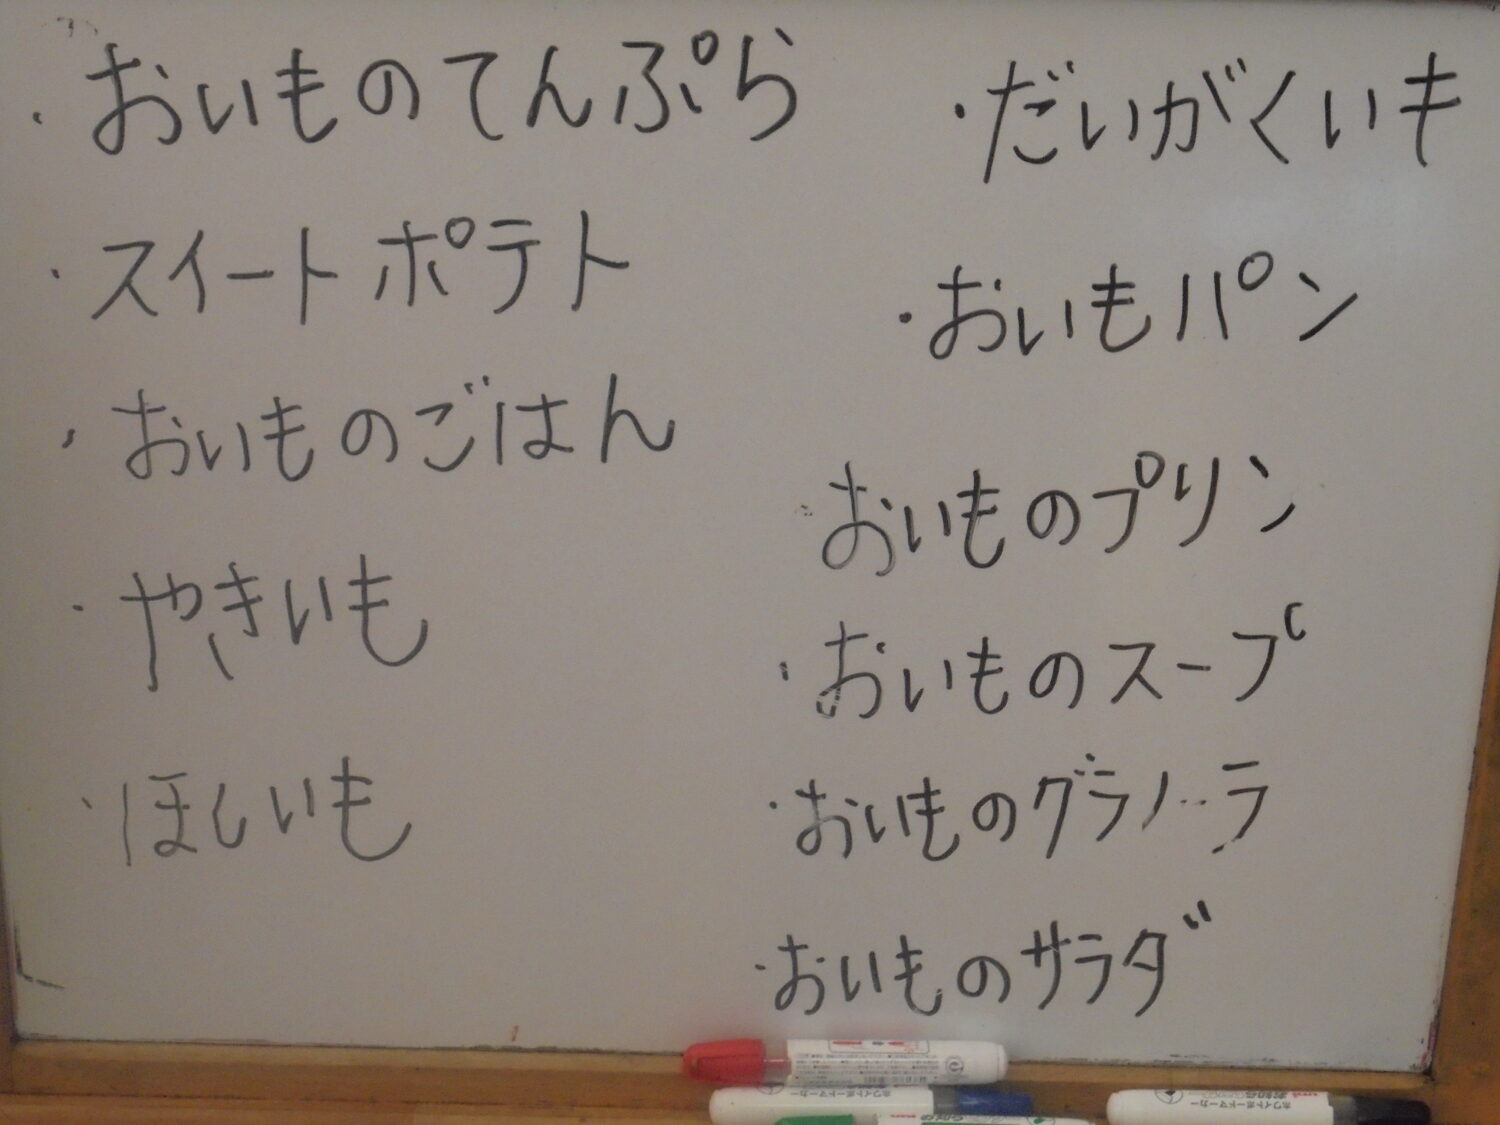 ・おいものてんぷら
・スイートポテト
・おいものごはん
・やきいも
・ほしいも
・だいがくいも
・おいもパン
・おいものプリン
・おいものスープ
・おいものグラノーラ
・おいものサラダ
ホワイトボードマーカー
ホワイトボードマーカー